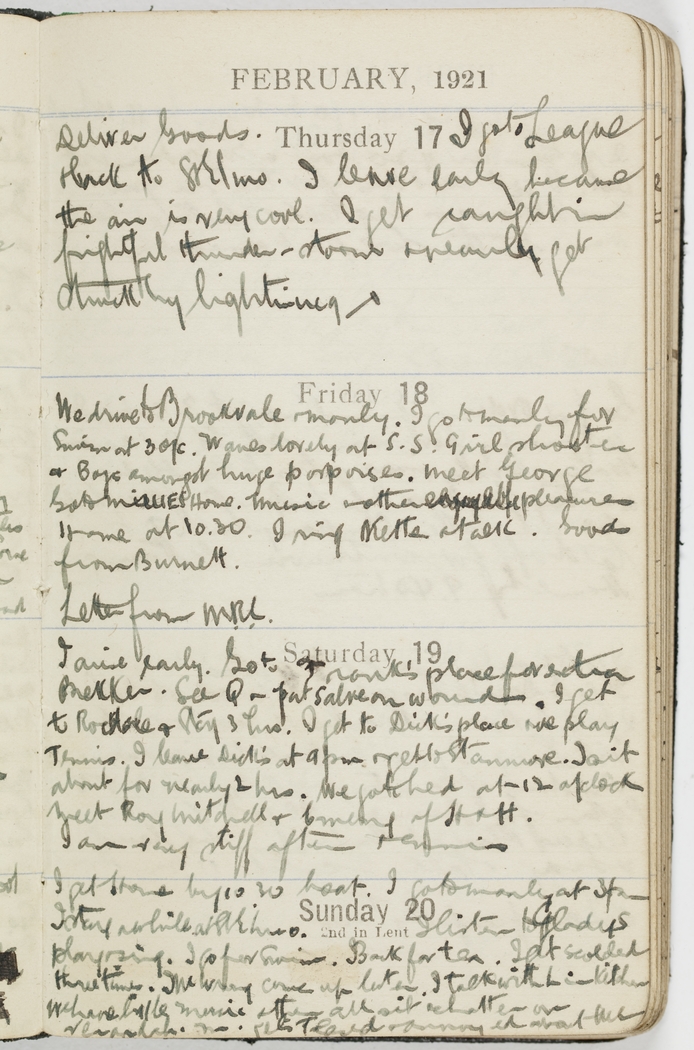 FEBRUARY, 1921
Deliver Goods. Thursday 17 I go to League
Back to St Elmo. I leave early because
the air is very cool. I get caught in
frightful thunder-storm & nearly get
struck by lightning
Friday 18
We drive to Brookvale & manly. I go to manly for
Swim at 3 o/c. Waves lovely at S.S. Girl
or Boys amongst huge porpoises. meet George
Go to Home. Music & other pleasures
Home at 10.30. I ring Nette & talk. Goods
from Burnett.
Letter from
Saturday 19
I arise early. Go to Frank's place for extra
See Q put salve on wound. I get
to & stay 3 hrs. I get to Dick's place & we play
Tennis. I leave Dick's at 9 pm & get to Stanmore. I sit
about for nearly 2 hrs. We at 12 o'clock
meet Roy Mitchell & of Staff.
I am very stiff after tennis
I get Home by 10 30 boat. I go to manly at 3 pm
Sunday 20
I stay awhile at St Elmo. I listen to Gladys
2nd in Lent
play & sing. I go for swim. Back for tea. I get scolded
three times. come up later. I talk with in kitchen
We have little music after all sit & chatter on
& annoyed about